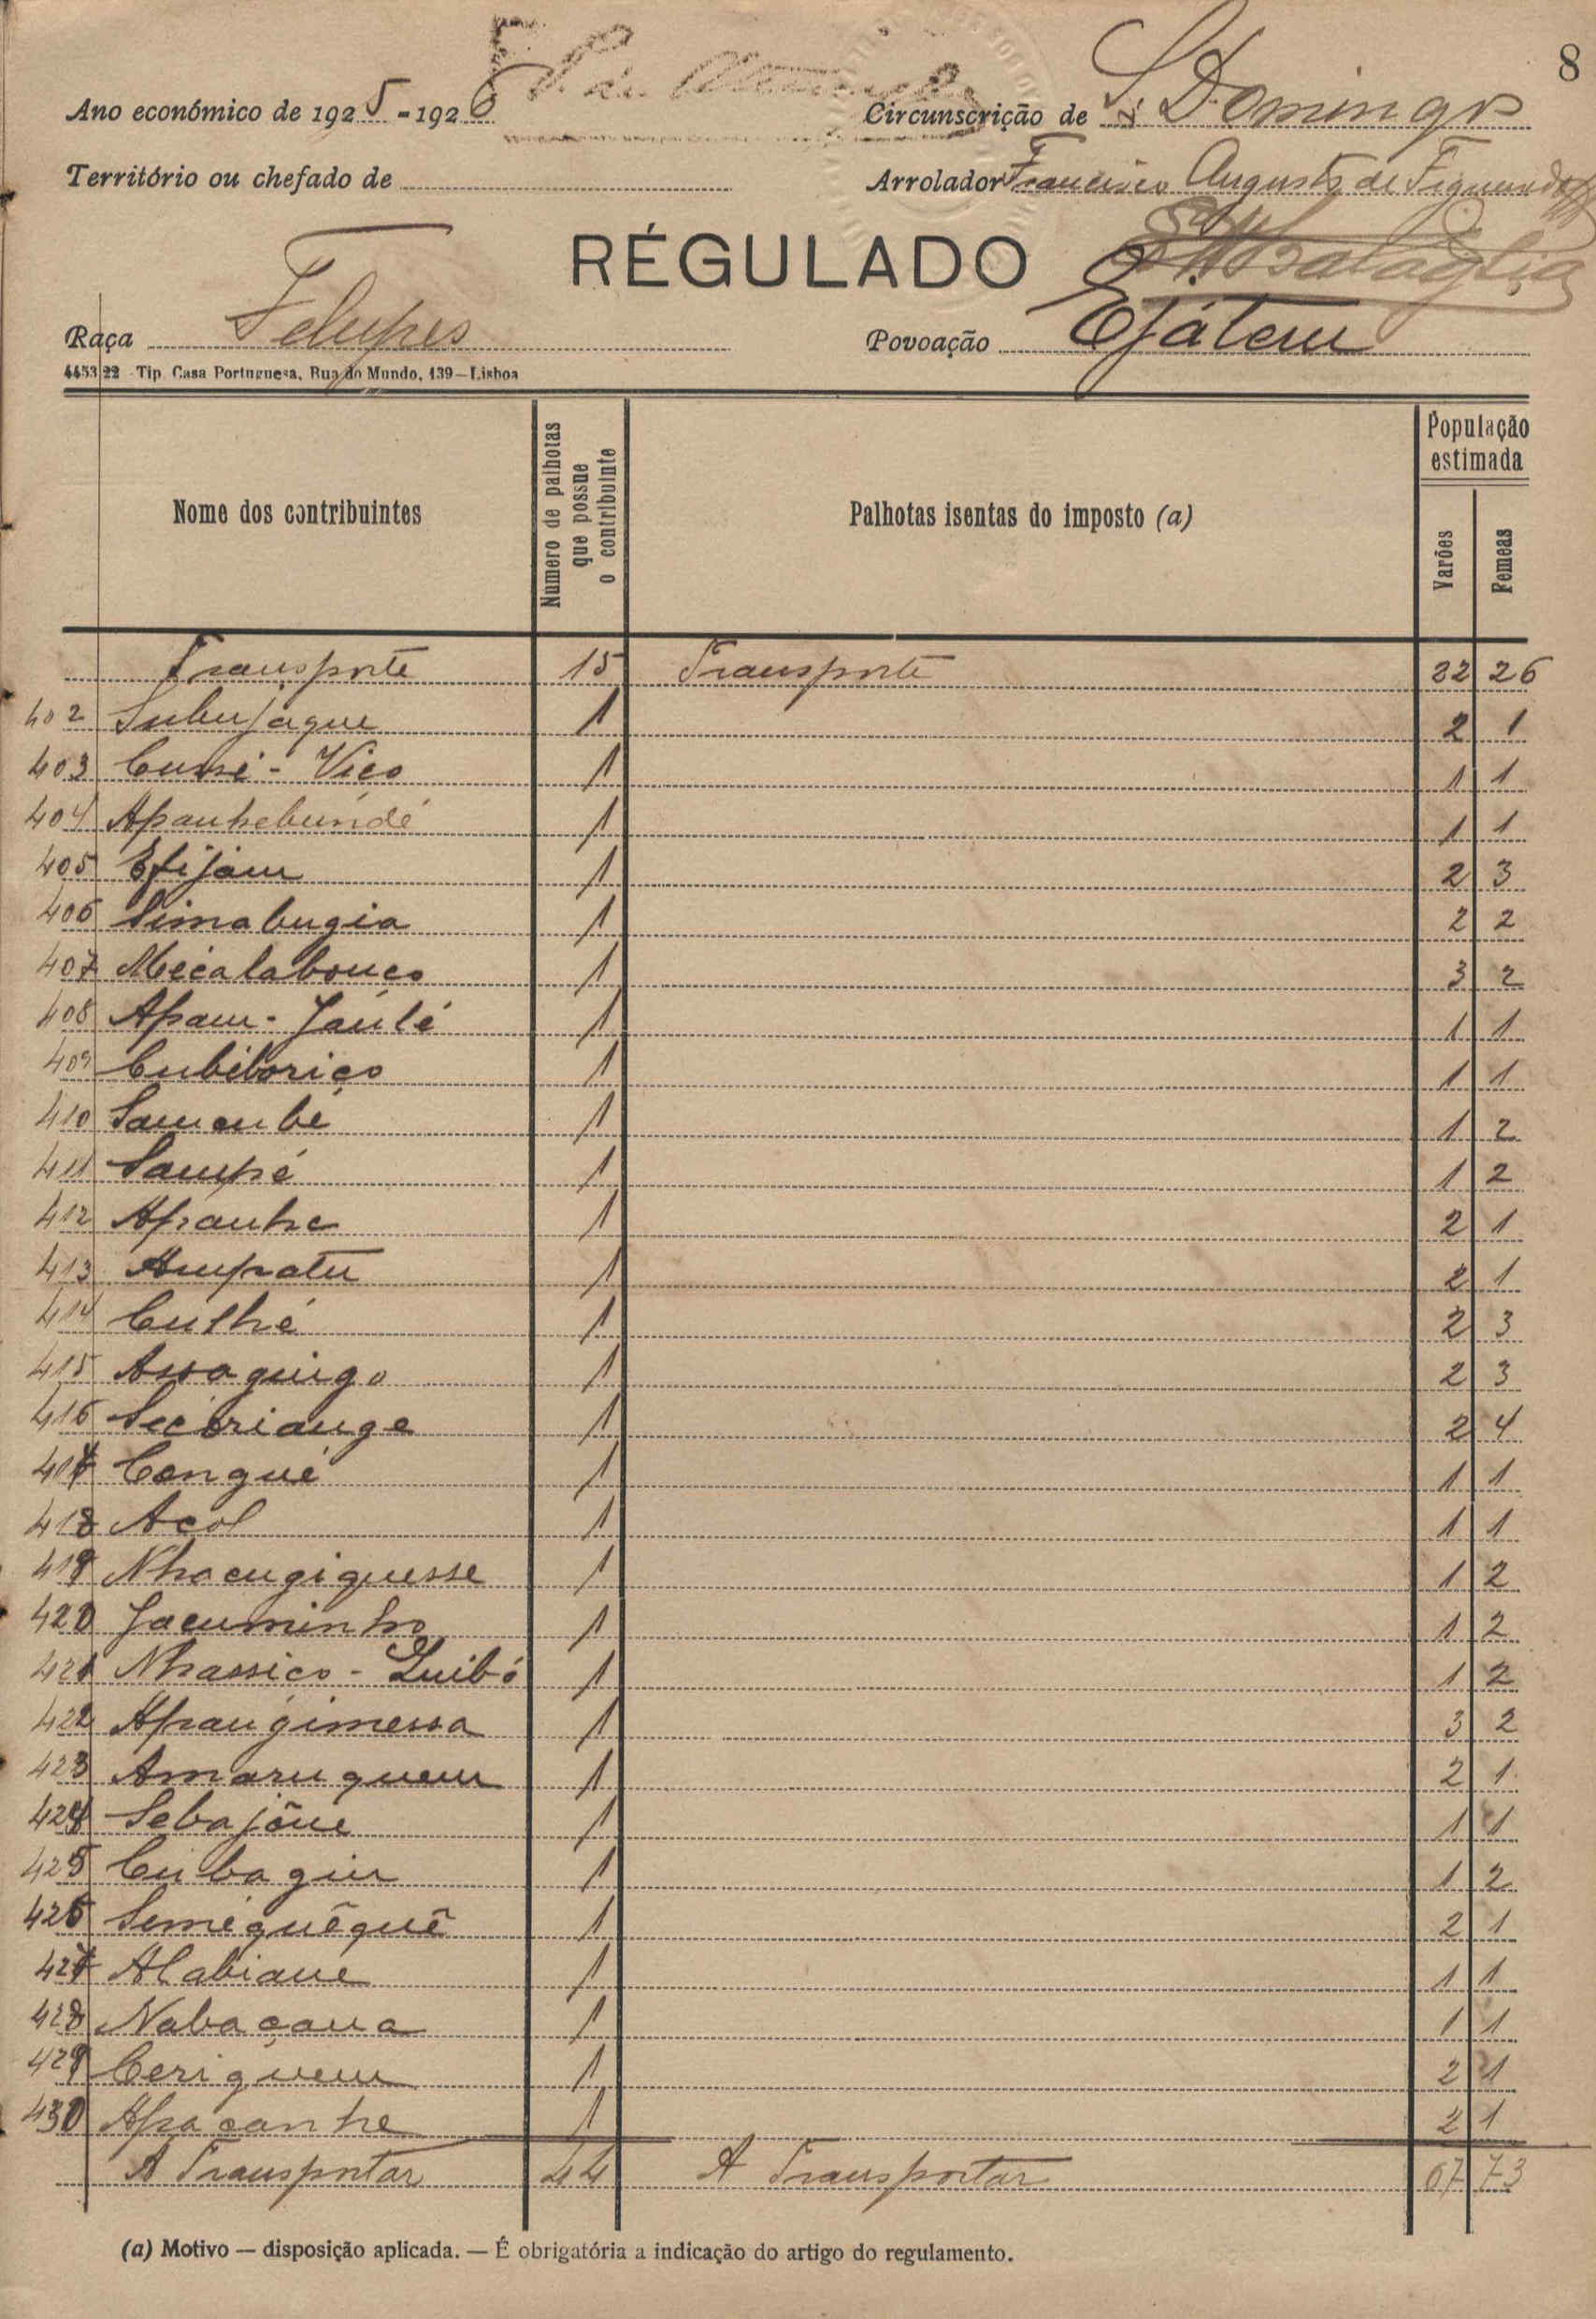 8
Ano económico de 1925-1926 Circunscrição de S. Domingos
Território ou chefado de
Arrolador Francisco Augusto de Figueiredo
RÉGULADO
Raça Felupes Povoação Ejátem
4453 22 Tip. Casa Portuguesa, Rua do Mundo, 139—Lisboa
Nome dos contribuintes Numero de palhotas que possue o contribuinte Palhotas isentas do imposto (a) População estimada Varões Femeas
Transporte 15 Transporte 22 26
402 Subujaque 1 2 1
403 Cussi - Vico 1 1 1
404 Apanhebundé 1 1 1
405 Efijam 1 2 3
406 Simabugia 1 2 2
407 Mécalabouco 1 3 2
408 Apam - Jaulé 1 1 1
409 Cubiborico 1 1 1
410 Samembé 1 1 2
411 Sampé 1 1 2
412 Apanhe 1 2 1
413 Ampatu 1 2 1
414 Culhé 1 2 3
415 Assaguigo 1 2 3
416 Secoriauge 1 2 4
417 Congué 1 1 1
418 Acol 1 1 1
419 Nhacugiguesse 1 1 2
420 Jacuminho 1 1 2
421 Nhassico - Quibó 1 1 2
422 Apaugimessa 1 3 2
423 Amaruguem 1 2 1
424 Sebajône 1 1 1
425 Cubagiu 1 1 2
426 Seméguêguê 1 2 1
427 Alabiane 1 1 1
428 Nabaçaua 1 1 1
429 Ceriguem 1 2 1
430 Apacanhe 1 2 1
A Transportar 44 A Transportar 67 73
(a) Motivo — disposição aplicada. — É obrigatória a indicação do artigo do regulamento.